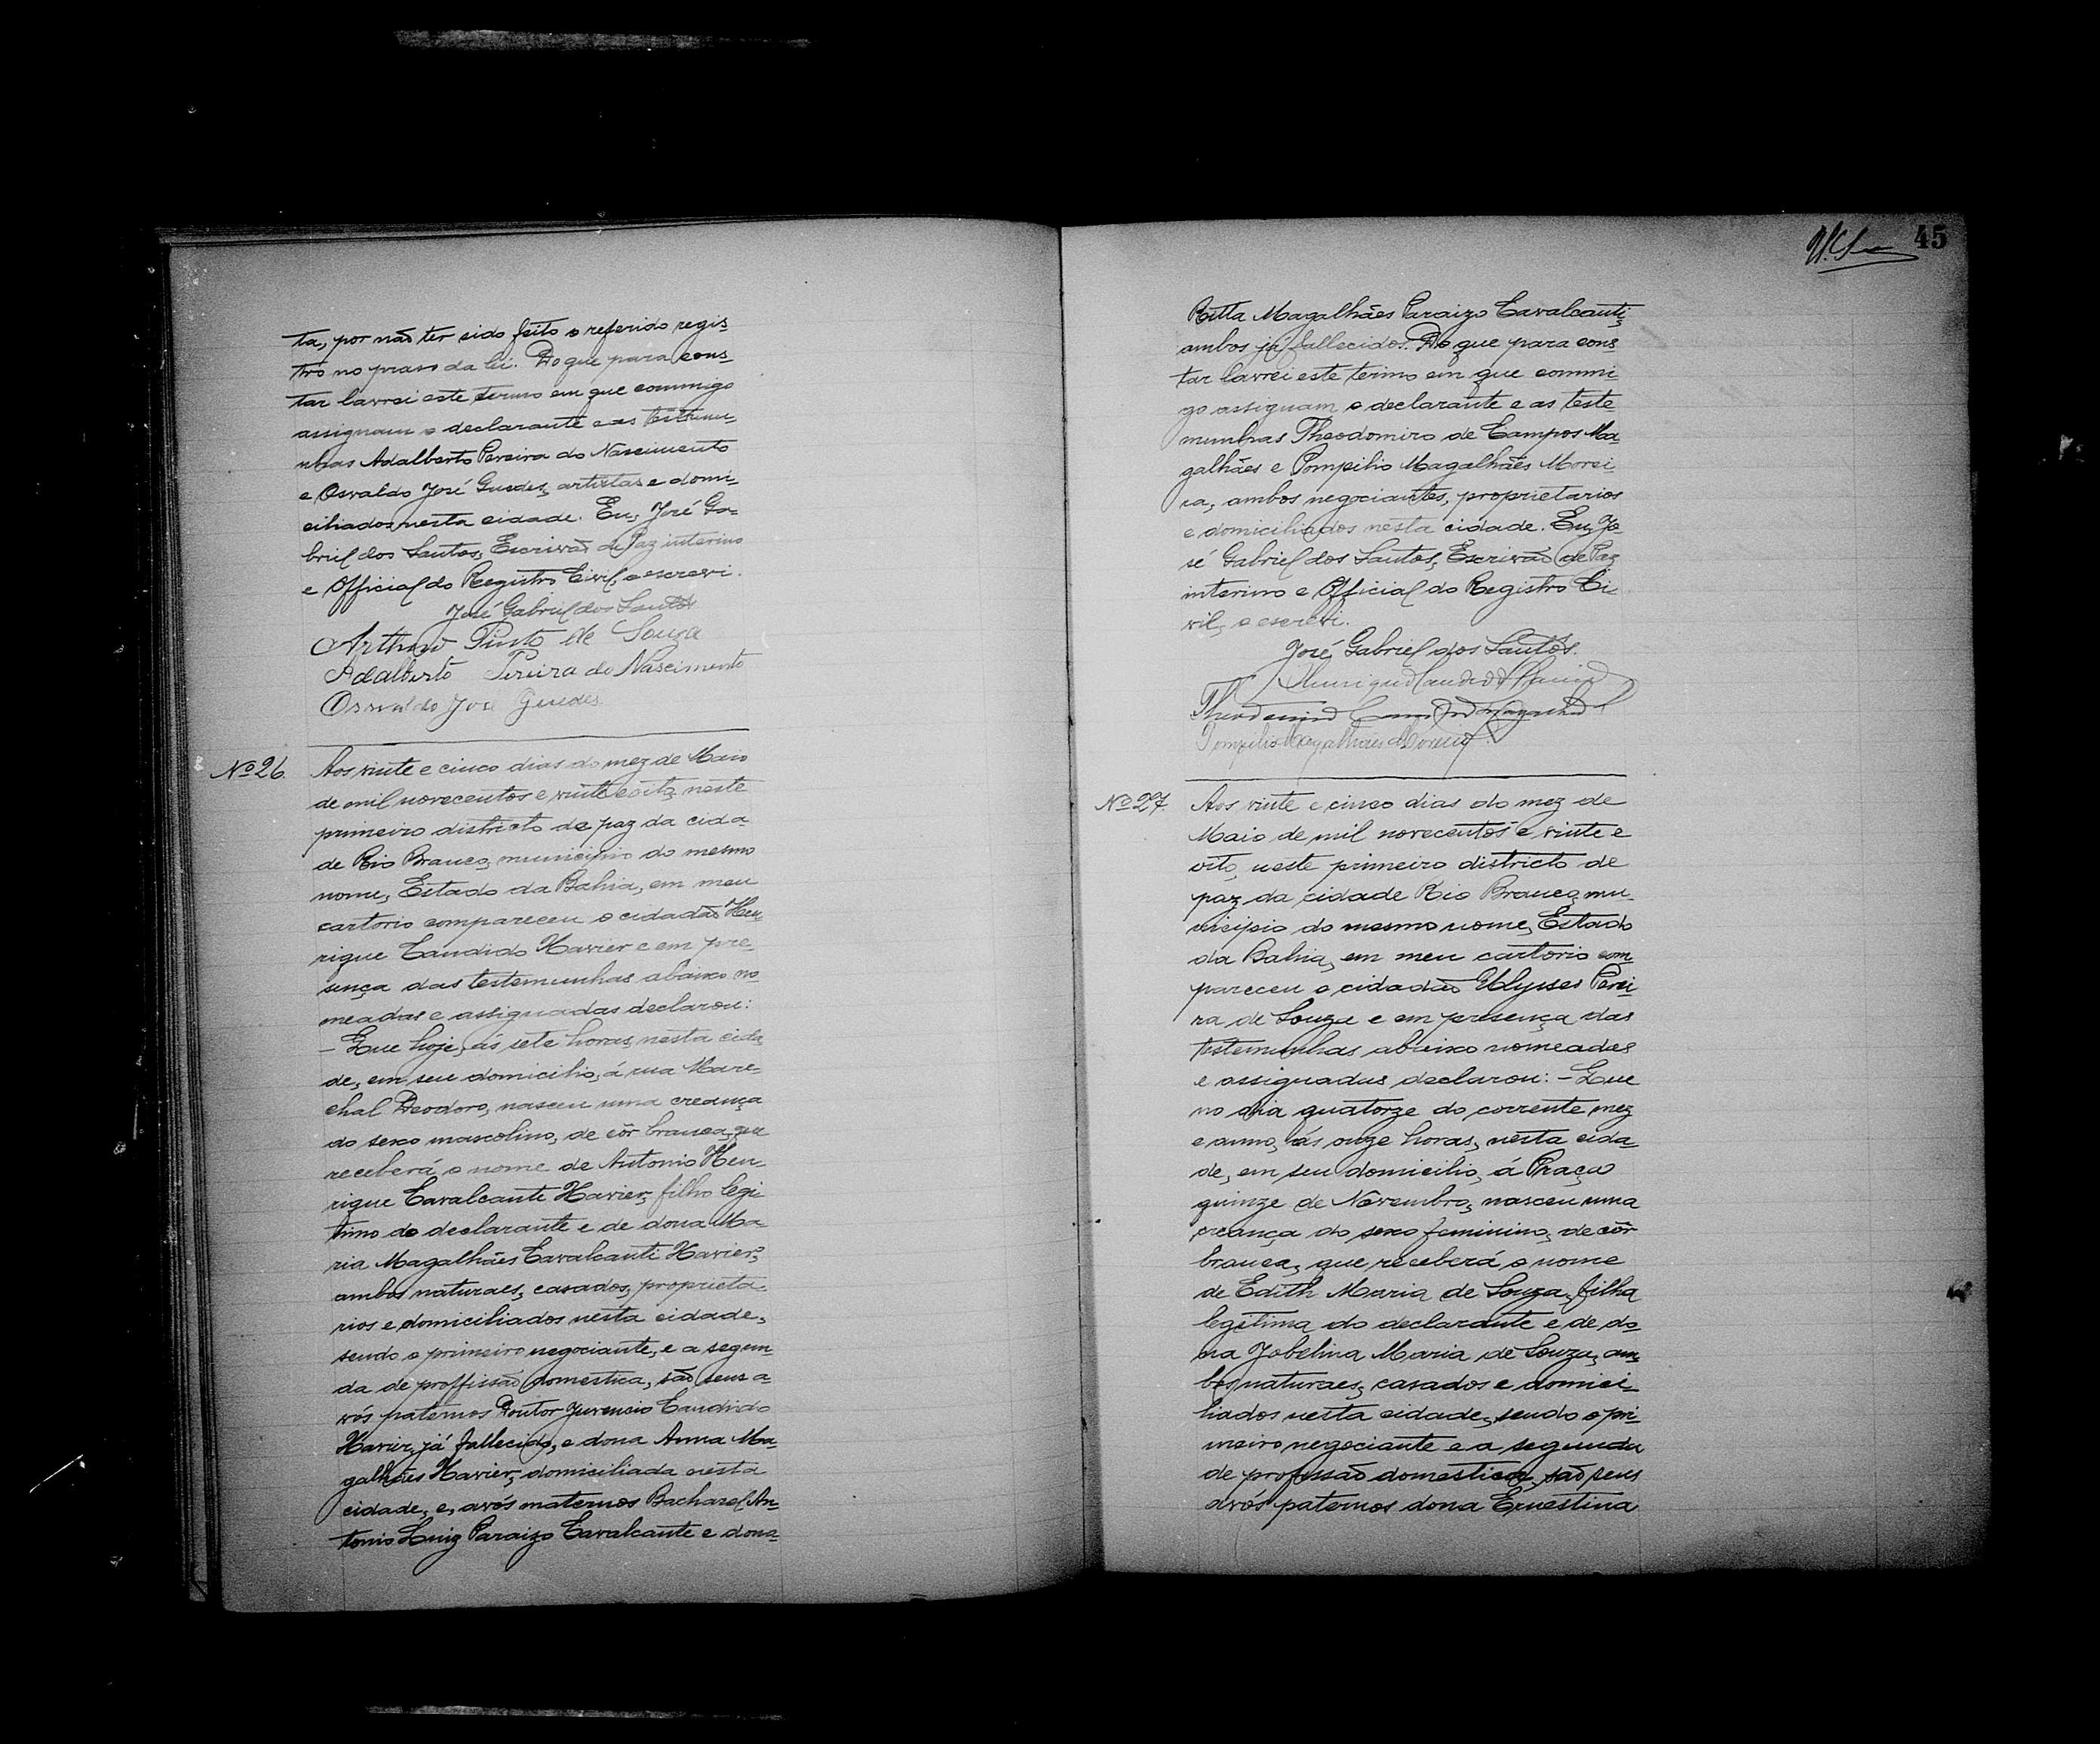 ta, por não ter sido feito o referido regis-
tro no praso da lei. Do que para cons-
tar lavrei este termo em que commigo
assignam o declarante e as testemu-
nhas Adalberto Pereira do Nascimento
e Osvaldo José Guedes, artistas e domi-
ciliados nesta cidade. Eu, José Ga-
briel dos Santos, Escrivão de Paz interino
e Official do Registro Civil, o escrevi.
José Gabriel dos Santos
Arthur Pinto de Souza
Adalberto Pereira do Nascimento
Osvaldo José Guedes
Nº 26.
Aos vinte e cinco dias do mez de Maio
de mil novecentos e vinte e oito, neste
primeiro districto de paz da cida-
de Rio Branco, municipio do mesmo
nome, Estado da Bahia, em meu
cartorio compareceu o cidadão Hen-
rique Candido Xavier e em pre-
sença das testemunhas abaixo no-
meadas e assignadas declarou:
- Que hoje, ás sete horas, nesta cida-
de, em seu domicilio, á rua Mare-
chal Deodoro, nasceu uma creança
do sexo mascolino, de côr branca, que
receberá o nome de Antonio Hen-
rique Cavalcante Xavier, filho legi-
timo do declarante e de dona Ma-
ria Magalhães Cavalcanti Xavier,
ambos naturaes, casados, proprieta-
rios e domiciliados nesta cidade,
sendo o primeiro negociante, e a segun-
da de proffissão domestica, são seus a-
vós paternos Doutor Juvencio Candido
Xavier, já fallecido, e dona Anna Ma-
galhães Xavier, domiciliada nesta
cidade, e, avós maternos Bacharel An-
tonio Luiz Paraizo Cavalcante e dona
45
Ritta Magalhães Paraizo Cavalcanti,
ambos já fallecidos. Do que para cons-
tar lavrei este termo em que commi-
go assignam o declarante e as teste-
munhas Theodomiro de Campos Ma-
galhães e Pompilio Magalhães Morei-
ra, ambos negociantes, proprietarios
e domiciliados nesta cidade. Eu, Jo-
sé Gabriel dos Santos, Escrivão de Paz
interino e Official do Registro Ci-
vil, o escrevi.
José Gabriel dos Santos.
Henrique Candido Xavier
Theodomiro Campos Magalhães
Pompilio Magalhães Moreira
Nº 27.
Aos vinte e cinco dias do mez de
Maio de mil novecentos e vinte e
oito, neste primeiro districto de
paz da cidade Rio Branco, mu-
nicipio do mesmo nome, Estado
da Bahia, em meu cartorio com-
pareceu o cidadão Ulysses Perei-
ra de Souza e em presença das
testemunhas abaixo nomeadas
e assignadas declarou: - Que
no dia quatorze do corrente mez
e anno, ás onze horas, nesta cida-
de, em seu domicilio, á Praça
quinze de Novembro, nasceu uma
creança do sexo feminino, de côr
branca, que receberá o nome
de Edith Maria de Souza, filha
legitima do declarante e de do-
na Jobelina Maria de Souza, am-
bos naturaes, casados e domici-
liados nesta cidade, sendo o pri-
meiro negociante e a segunda
de profissão domestica, são seus
avós paternos dona Ernestina